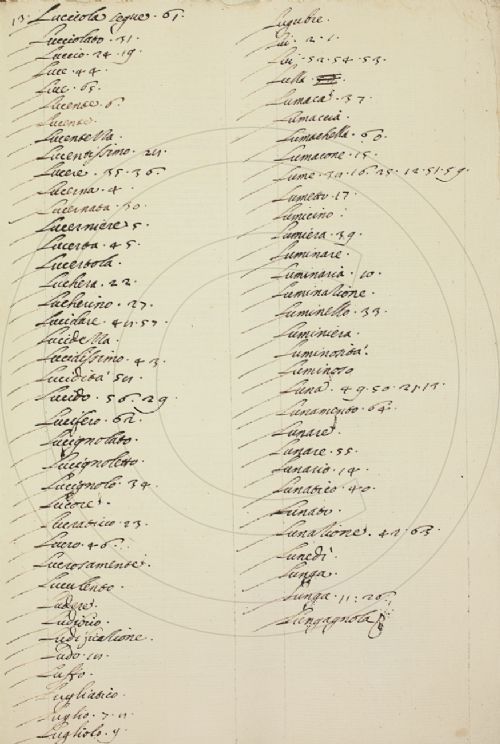 13. Lucciola segue. 61.
Lucciolato. 31.
Luccio. 24. 19.
Luce. 44.
Luc. 65.
Lucente. 6.
Lucente.
Lucentella.
Lucentissimo. 21.
Lucere. 35. 36
Lucerna. 4.
Lucernata. 30.
Lucerniere 5.
Lucerta. 45.
Lucertola.
Luchera. 22.
Lucherino. 27.
Lucidare. 41. 57.
Lucidella.
Lucidissimo. 43.
Lucidità 51.
Lucido. 56. 29.
Lucifero. 62.
Lucignolato.
Lucignoletto.
Lucignolo. 34.
Lucore.
Lucrativo. 23.
Lucro. 46.
Lucrosamente.
Luculento.
Ludere.
Ludibrio.
Ludificatione.
Ludo.
Luffo.
Lugliatico.
Luglio. 7.
Lugliolo. 9.
Lugubre.
Lui. 2. 1.
Lui. 52. 54. 53.
Lulla
Lumaca. 37.
Lumaccia.
Lumachella. 60.
Lumacone. 15.
Lume. 16. 25. 12. 51. 59.
Lumetto. 17.
Lumicino.
Lumiera. 39.
Luminare.
Luminaria. 10.
Luminatione.
Luminello. 33.
Luminiera.
Luminosità.
Luminoso
Luna. 49. 50. 21.
Lunamento. 64.
Lunare.
Lunare. 55.
Lunario. 14.
Lunatico. 40.
Lunato.
Lunatione. 42. 63.
Lunedì.
Lunga.
Lunga. 11. 26.
Lungagnola